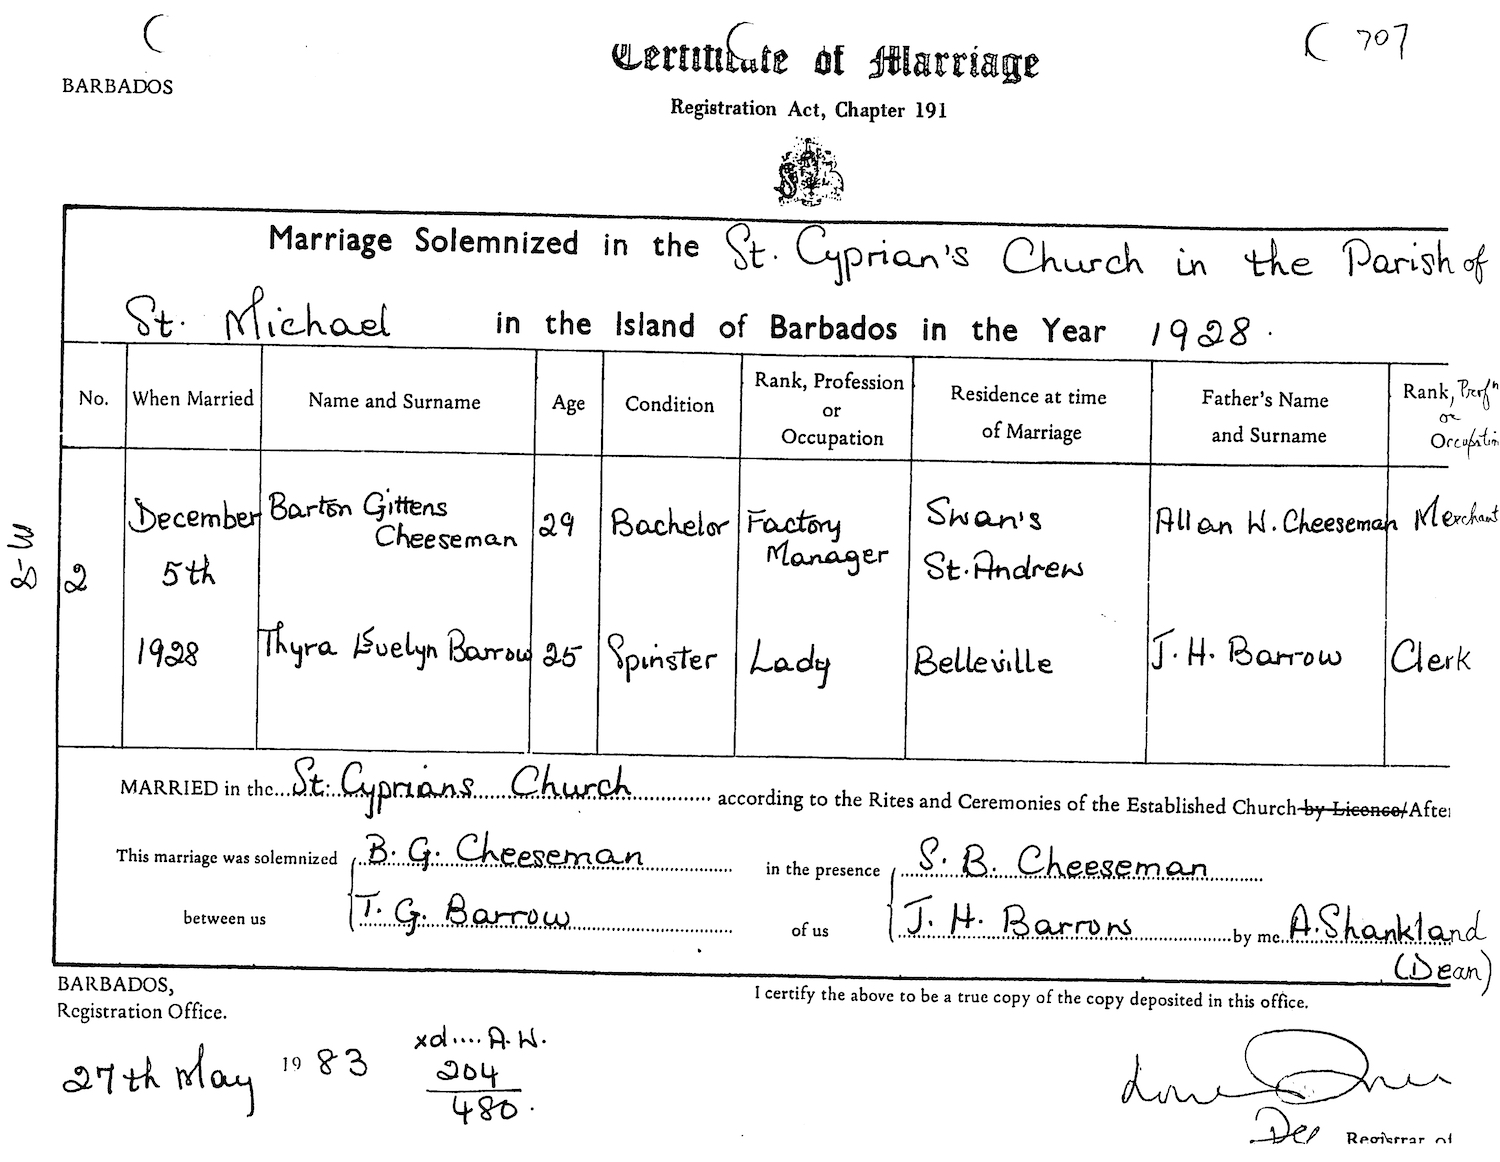 ( 707
Certificate of Marriage
BARBADOS
Registration Act, Chapter 191
Marriage Solemnized in the St. Cyprian's Church in the Parish of
St. Michael in the Island of Barbados in the Year 1928.
No. When Married Name and Surname Age Condition Rank, Profession or Occupation Residence at time of Marriage Father's Name and Surname Rank, Prof'n or Occupation
2-W
2 December 5th 1928
Barton Gittens Cheeseman 29 Bachelor Factory Manager Swan's St. Andrew Allan W. Cheeseman Merchant
Thyra Evelyn Barrow 25 Spinster Lady Belleville J. H. Barrow Clerk
MARRIED in the St. Cyprians Church according to the Rites and Ceremonies of the Established Church by Licence/After
This marriage was solemnized B. G. Cheeseman in the presence S. B. Cheeseman
between us T. G. Barrow of us J. H. Barrow by me A. Shankland
(Dean)
BARBADOS,
Registration Office.
I certify the above to be a true copy of the copy deposited in this office.
27th May 1983
xd.... A. W.
204
480.
Registrar of